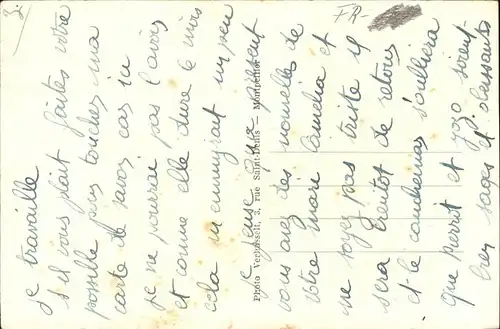 3.
FR-
je travaille
s'il vous plait faites votre
possible pour toucher ma
carte de savon car ici
je ne pourrai pas l'avoir
et comme elle dure le mois
cela m'ennuyrait un peu
je pense que present
vous avez des nouvelles de
votre mari Camelia et
ne soyez pas triste il
sera bientot de retour
et le
que pierrot et zozo soient
bien sages et
Photo Verdoussalt, 3, rue Saint-Denis — Montpellier